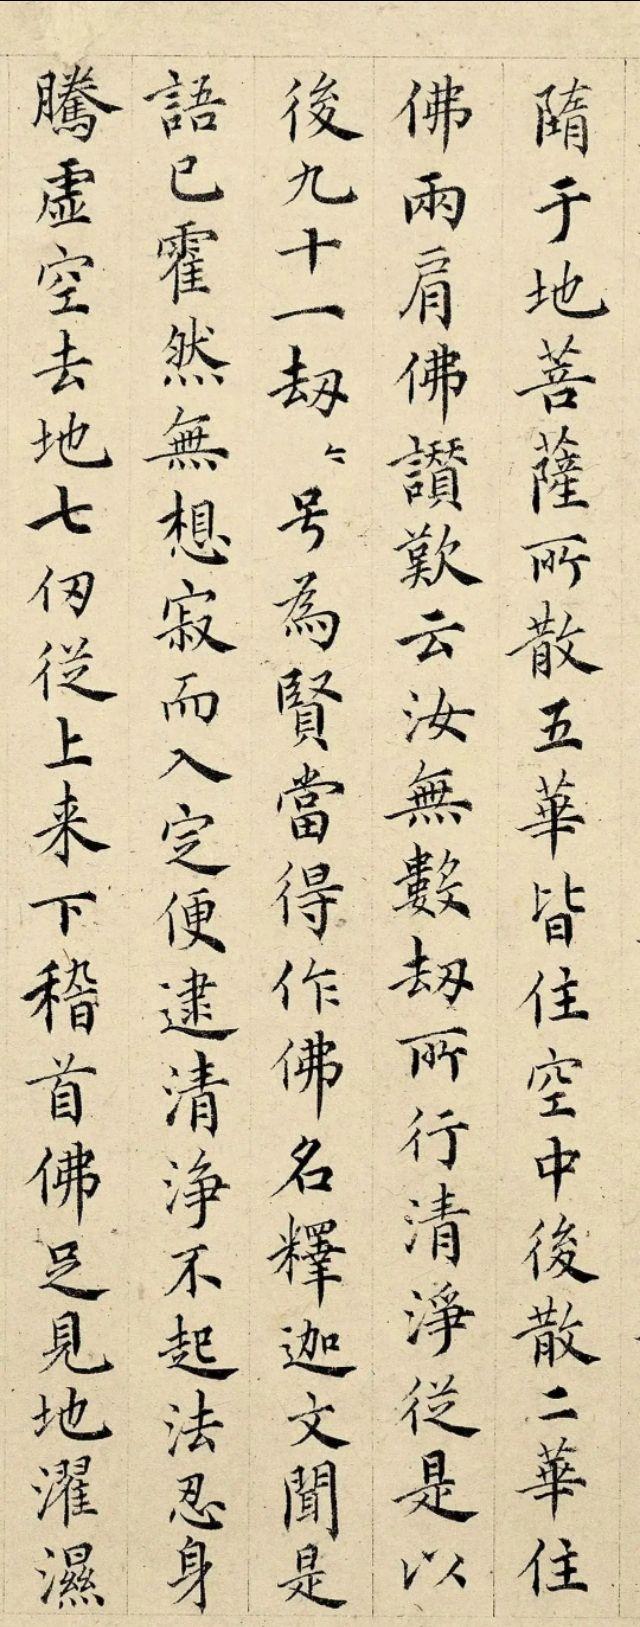 隋于地菩薩所散五華皆住空中後散二華住
佛兩肩佛讃歎云汝無數刼所行清淨從是以
後九十一刼〻号為賢當得作佛名釋迦文聞是
語已霍然無想寂而入定便逮清淨不起法忍身
騰虛空去地七仞從上来下稽首佛足見地濯濕